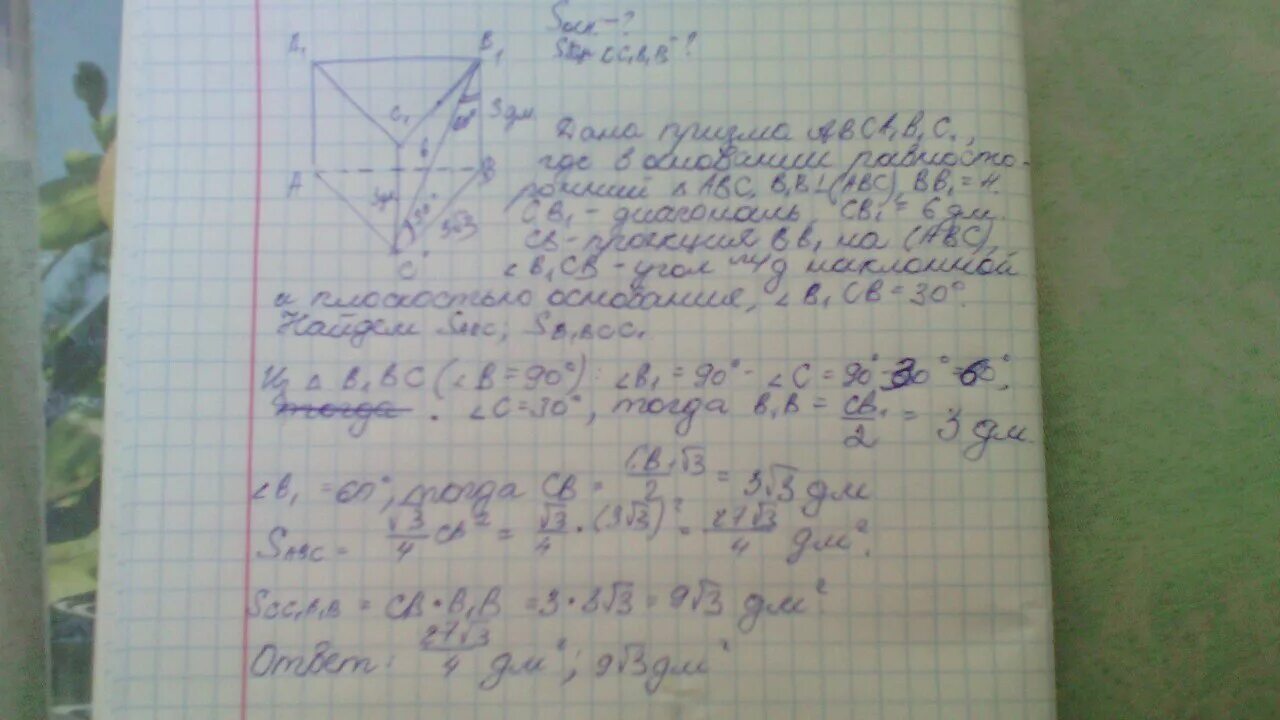 Sосн - ?
SCC₁B₁B - ?
B₁
B₁
C₁
60°
3 дм
6
A
B
30°
3√3
C
Дана призма ABCA₁B₁C₁,
где в основании равносто-
ронний △ ABC. B₁B⊥(ABC), BB₁ = H.
CB₁ - диагональ, CB₁ = 6 дм.
CB - проекция BB₁ на (ABC),
∠B₁CB - угол м/д наклонной
и плоскостью основания, ∠B₁CB = 30°.
Найдем SABC; SB₁BCC₁
Из △ B₁BC (∠B = 90°): ∠B₁ = 90° - ∠C = 90° - 30° = 60°.
тогда . ∠C = 30°, тогда B₁B = CB₁/2 = 3 дм
∠B₁ = 60°, тогда CB = CB₁√3/2 = 3√3 дм
SABC = √3/4 CB² = √3/4 · (3√3)² = 27√3/4 дм².
SCC₁B₁B = CB · B₁B = 3 · 3√3 = 9√3 дм²
Ответ: 27√3/4 дм²; 9√3 дм²